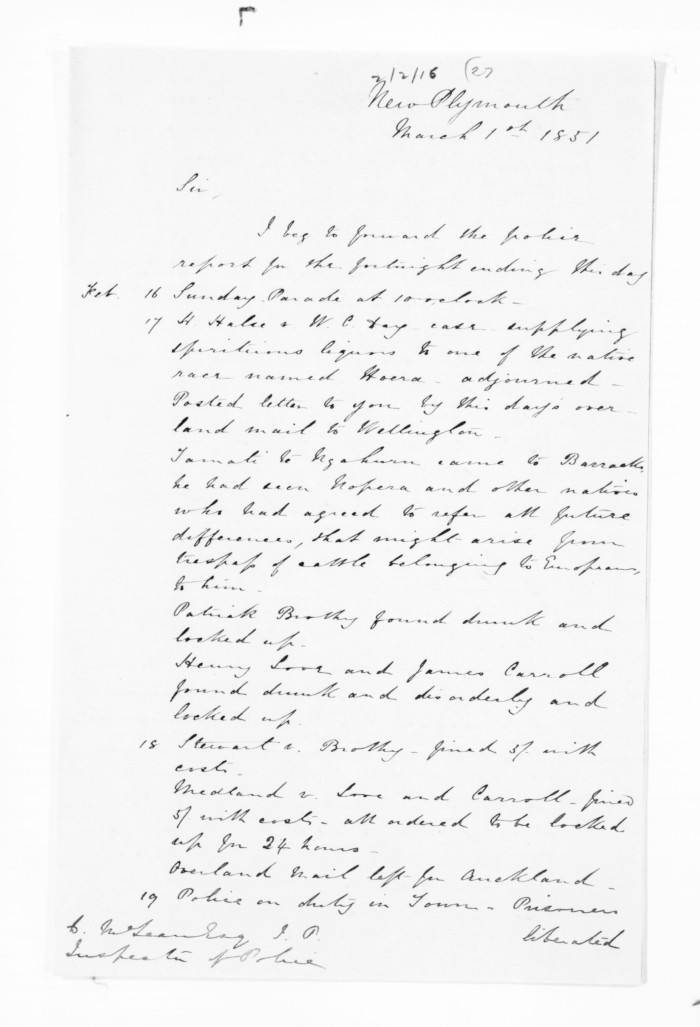 2/2/16 (27
New Plymouth
March 1st 1851
Sir,
I beg to forward the police
report for the fortnight ending this day
Feb. 16 Sunday. Parade at 10 o,clock -
17 H. Halse v. W. C. Hay - case - supplying
spirituous liquors to one of the native
race named Hoera - adjourned -
Posted letter to you by this day's over-
land mail to Wellington -
Tamati to Ngahuru came to Barracks,
he had seen Nopera and other natives
who had agreed to refer all future
differences, that might arise from
trespass of cattle belonging to Europeans,
to him -
Patrick Brothy found drunk and
locked up -
Henry Love and James Carroll
found drunk and disorderly and
locked up.
18 Stewart v. Brothy - fined 5/ with
costs -
Medland v. Love and Carroll - fined
5/ with costs - all ordered to be locked
up for 24 hours -
Overland Mail left for Auckland -
19 Police on duty in Town - Prisoners
liberated
McLean Esq J. P.
Inspector of Police